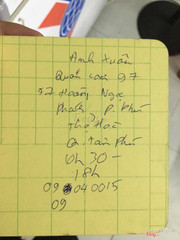 Anh Xuân
Quán cơm 97
52 Hoàng Ngọc
Phách P. Phú
Thọ Hoà
Q. Tân Phú
6h30 -
18h
09 040015
09